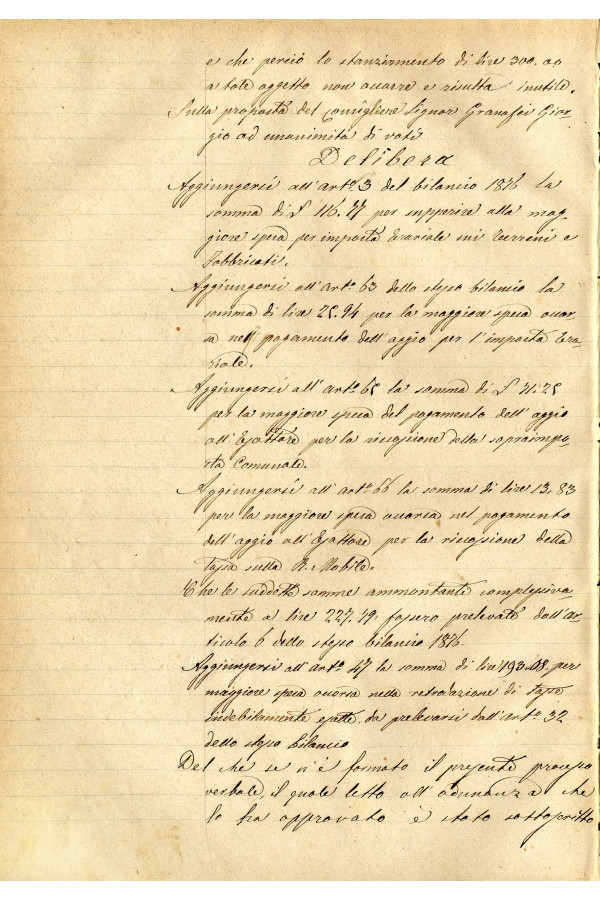 e che perciò lo stanziamento di lire 300.00
a tale oggetto non occorre e risulta inutile.
Sulla proposta del Consigliere Signor Granafei Gior-
gio ad unanimità di voti
Delibera
Aggiungersi all'art.º 3 del bilancio 1876 la
somma di £ 116.77 per supperire alla mag-
giore spesa per imposta Erariale sui terreni e
Fabbricati.
Aggiungersi all'art.º 63 dello stesso bilancio la
somma di lire 25.94 per la maggiore spesa occor-
sa nell pagamento dell'aggio per l'imposta Era-
riale.
Aggiungersi all'art.º 65 la somma di £ 71.25
per la maggiore spesa del pagamento dell'aggio
all'Esattore per la riscossione della sopraimpo-
sta Comunale.
Aggiungersi all'art.º 66 la somma di lire 13.83
per la maggiore spesa occorsa nel pagamento
dell'aggio all'Esattore per la riscossione della
tassa sulla R. Mobile.
Che le suddette somme ammontante complessiva-
mente a lire 227.79 fossero prelevate dall'ar-
ticolo 6 dello stesso bilancio 1876.
Aggiungersi all'art.º 47 la somma di lire 193.08, per
maggiore spesa occorsa nella retrodazione di tasse
indebitamente esatte da prelevarsi dall'art.º 32
dello stesso bilancio
Del che se n'è formato il presente processo
verbale, il quale letto all'adunanza che
lo ha approvato è stato sottoscritto